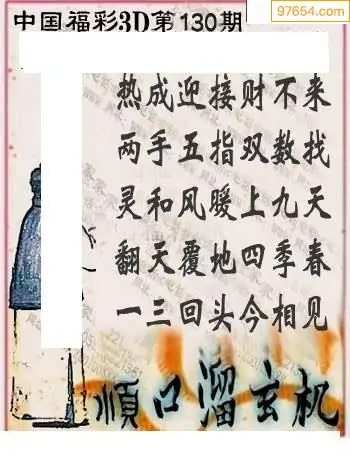 中国福彩3D第130期
97654.com
热成迎接财不来
两手五指双数找
灵和风暖上九天
翻天覆地四季春
一三回头今相见
顺口溜玄机